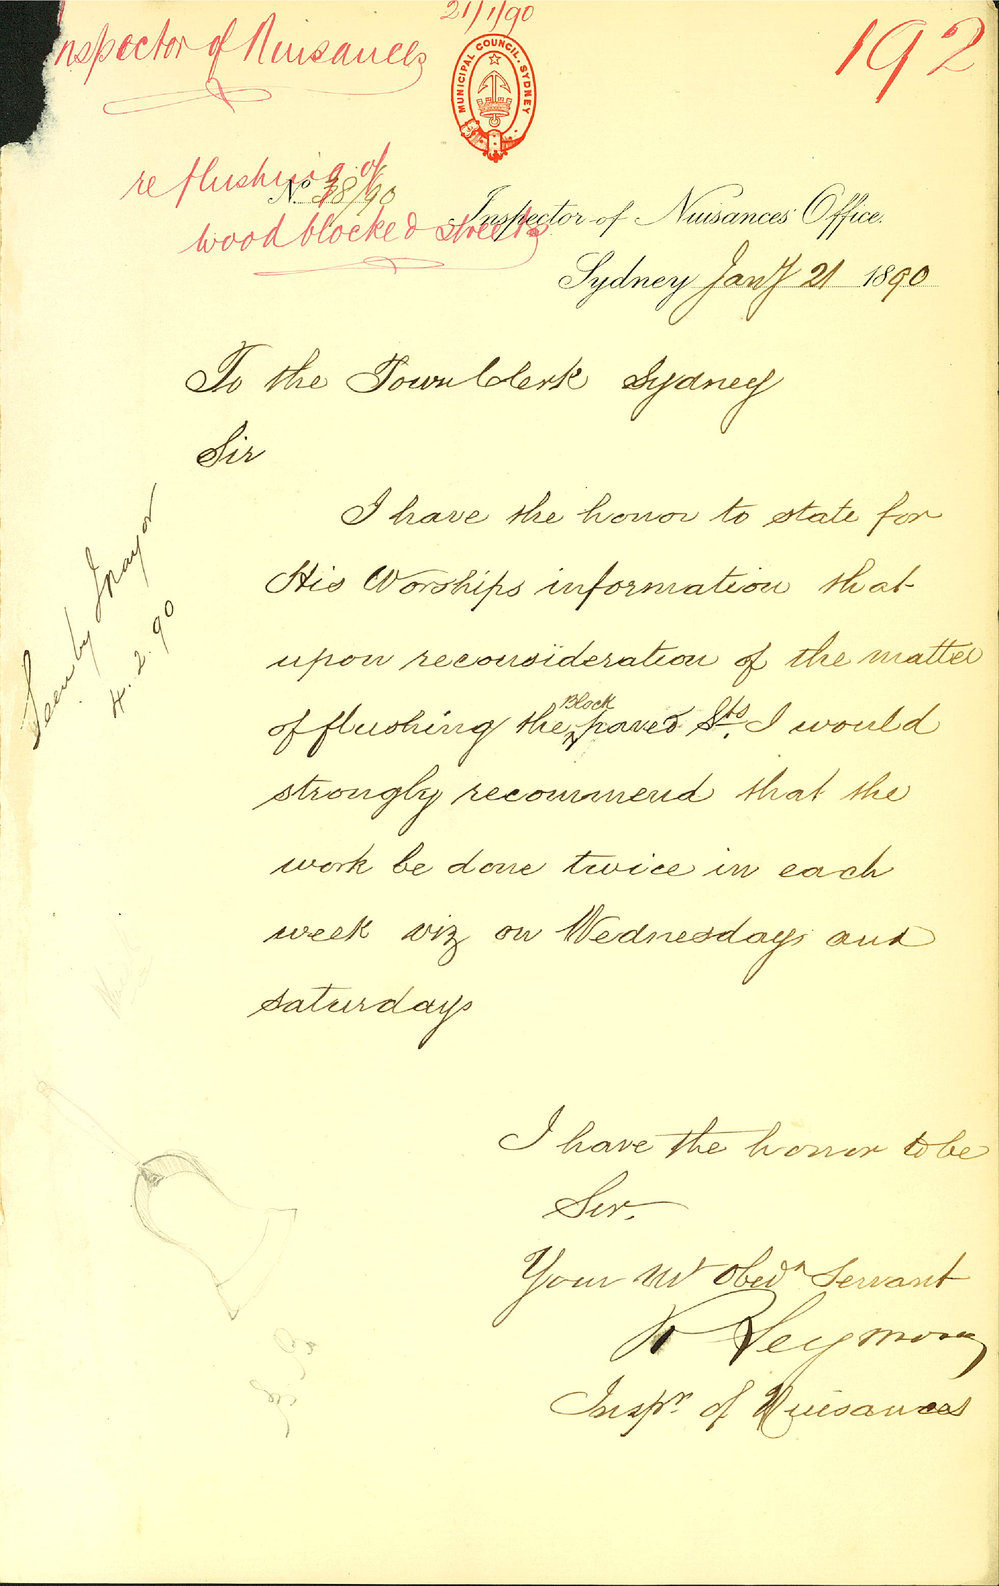 21/1/90
nspector of Nuisances
192
MUNICIPAL COUNCIL. SYDNEY
re flushing of
No 38/90
wood blocked streets
Inspector of Nuisances' Office.
Sydney Jany 21 1890
To the Town Clerk Sydney
Sir
I have the honor to state for
His Worships information that
upon reconsideration of the matter
of flushing the Block paved Sts. I would
strongly recommend that the
work be done twice in each
week viz on Wednesdays and
saturdays
Seen by Mayor
4.2.90
I have the honor to be
Sir.
Your Mt Obedn Servant
Seymour
Inspr. of Nuisances